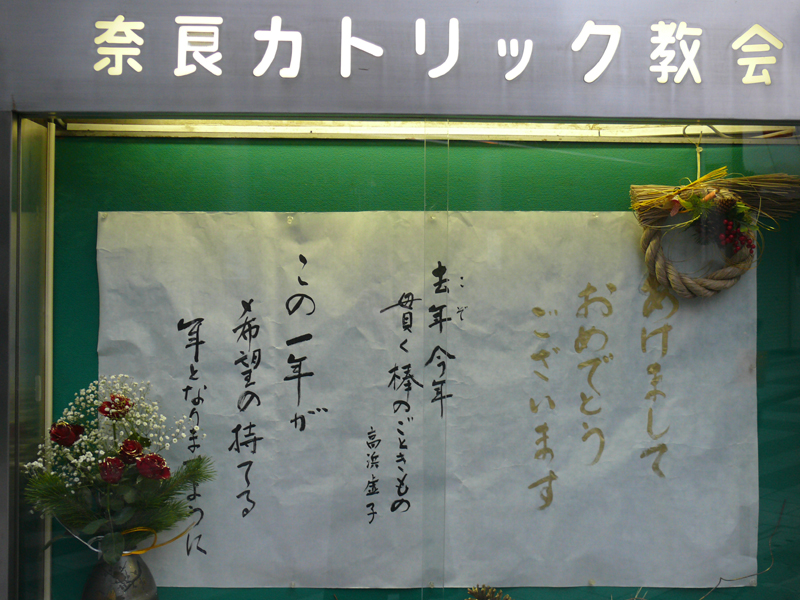 奈良カトリック教会
あけまして
おめでとう
ございます
去年今年
こぞ
貫く棒のごときもの
高浜虚子
この一年が
希望の持てる
年となりますように